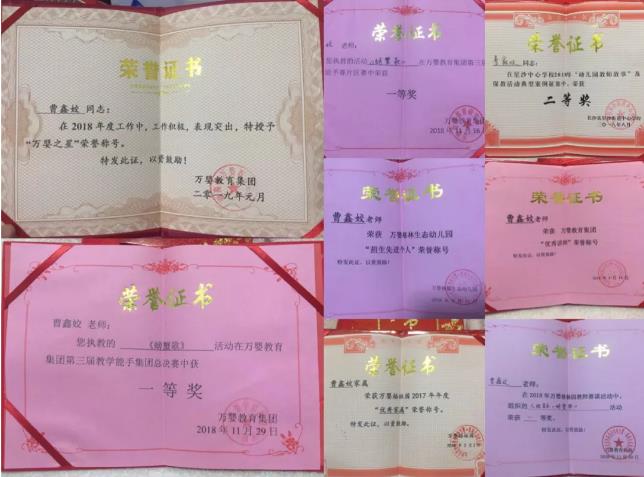 荣誉证书
曹鑫姣 同志：
在2018年度工作中，工作积极，表现突出，特授予
“万婴之星”荣誉称号。
特发此证，以资鼓励！
万婴教育集团
二零一九年元月
荣誉证书
曹鑫姣 老师：
您执教的 《螃蟹歌》 活动在万婴教育
集团第三届教学能手集团总决赛中获
一等奖
万婴教育集团
2018年11月29日
姣 老师：
您执教的活动《螃蟹歌》在万婴教育集团第三
能手赛片区赛中荣获
一等奖
万婴教育集
2018年11月16
荣誉证书
曹鑫姣老师
荣获 万婴格林生态幼儿园
“招生先进个人”荣誉称号
特发此证，以资鼓励！
荣誉证书
曹鑫姣家属
荣获万婴格林园2017年年度
“优秀家属”荣誉称号。
特发此证，以资鼓励。
荣誉证书
曹鑫姣同志：
在星沙中心学校2018年“幼儿园教师故事”及
保教活动典型案例征集中，荣获
二等奖
荣誉证书
曹鑫姣老师
荣获 万婴教育集团
“优秀讲师”荣誉称号
特发此证，以资鼓励！
荣誉证书
曹鑫姣 老师：
在2018年万婴格林园教师赛课活动中，
活动
荣获 一 等奖。